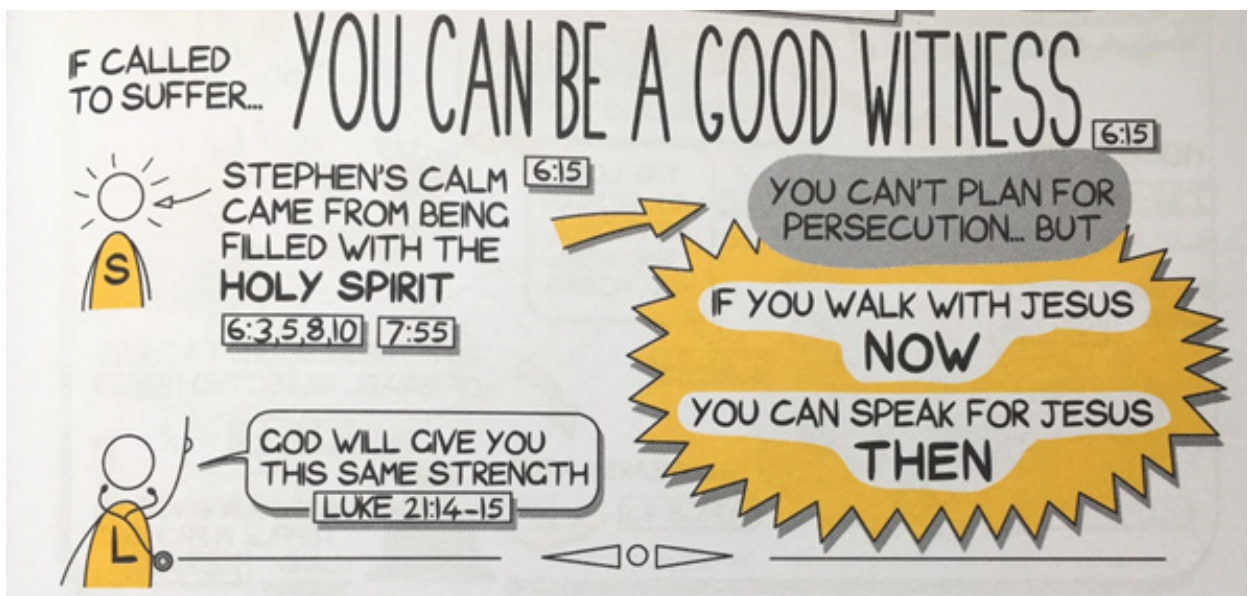 IF CALLED
TO SUFFER...
YOU CAN BE A GOOD WITNESS
6:15
STEPHEN'S CALM
CAME FROM BEING
FILLED WITH THE
HOLY SPIRIT
6:15
6:3,5,8,10 7:55
S
YOU CAN'T PLAN FOR
PERSECUTION... BUT
IF YOU WALK WITH JESUS
NOW
YOU CAN SPEAK FOR JESUS
THEN
GOD WILL GIVE YOU
THIS SAME STRENGTH
LUKE 21:14-15
L